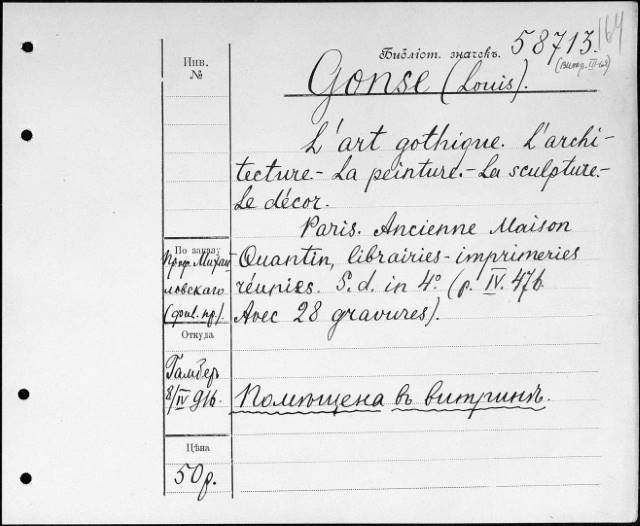 164
Библіот. значекъ. 58713.
Инв.
№
Gonse (Louis).
L'art gothique. L'archi-
tecture.- La peinture.- La sculpture.-
Le décor.
Paris. Ancienne Maison
Quantin, librairies-imprimeries
réunies. S. d. in 4º (p. IV. 476.
Avec 28 gravures).
По заказу
Проф. Михай-
ловскаго
Откуда
8/IV 916.
Помѣщена въ витринѣ.
Цѣна
50 р.